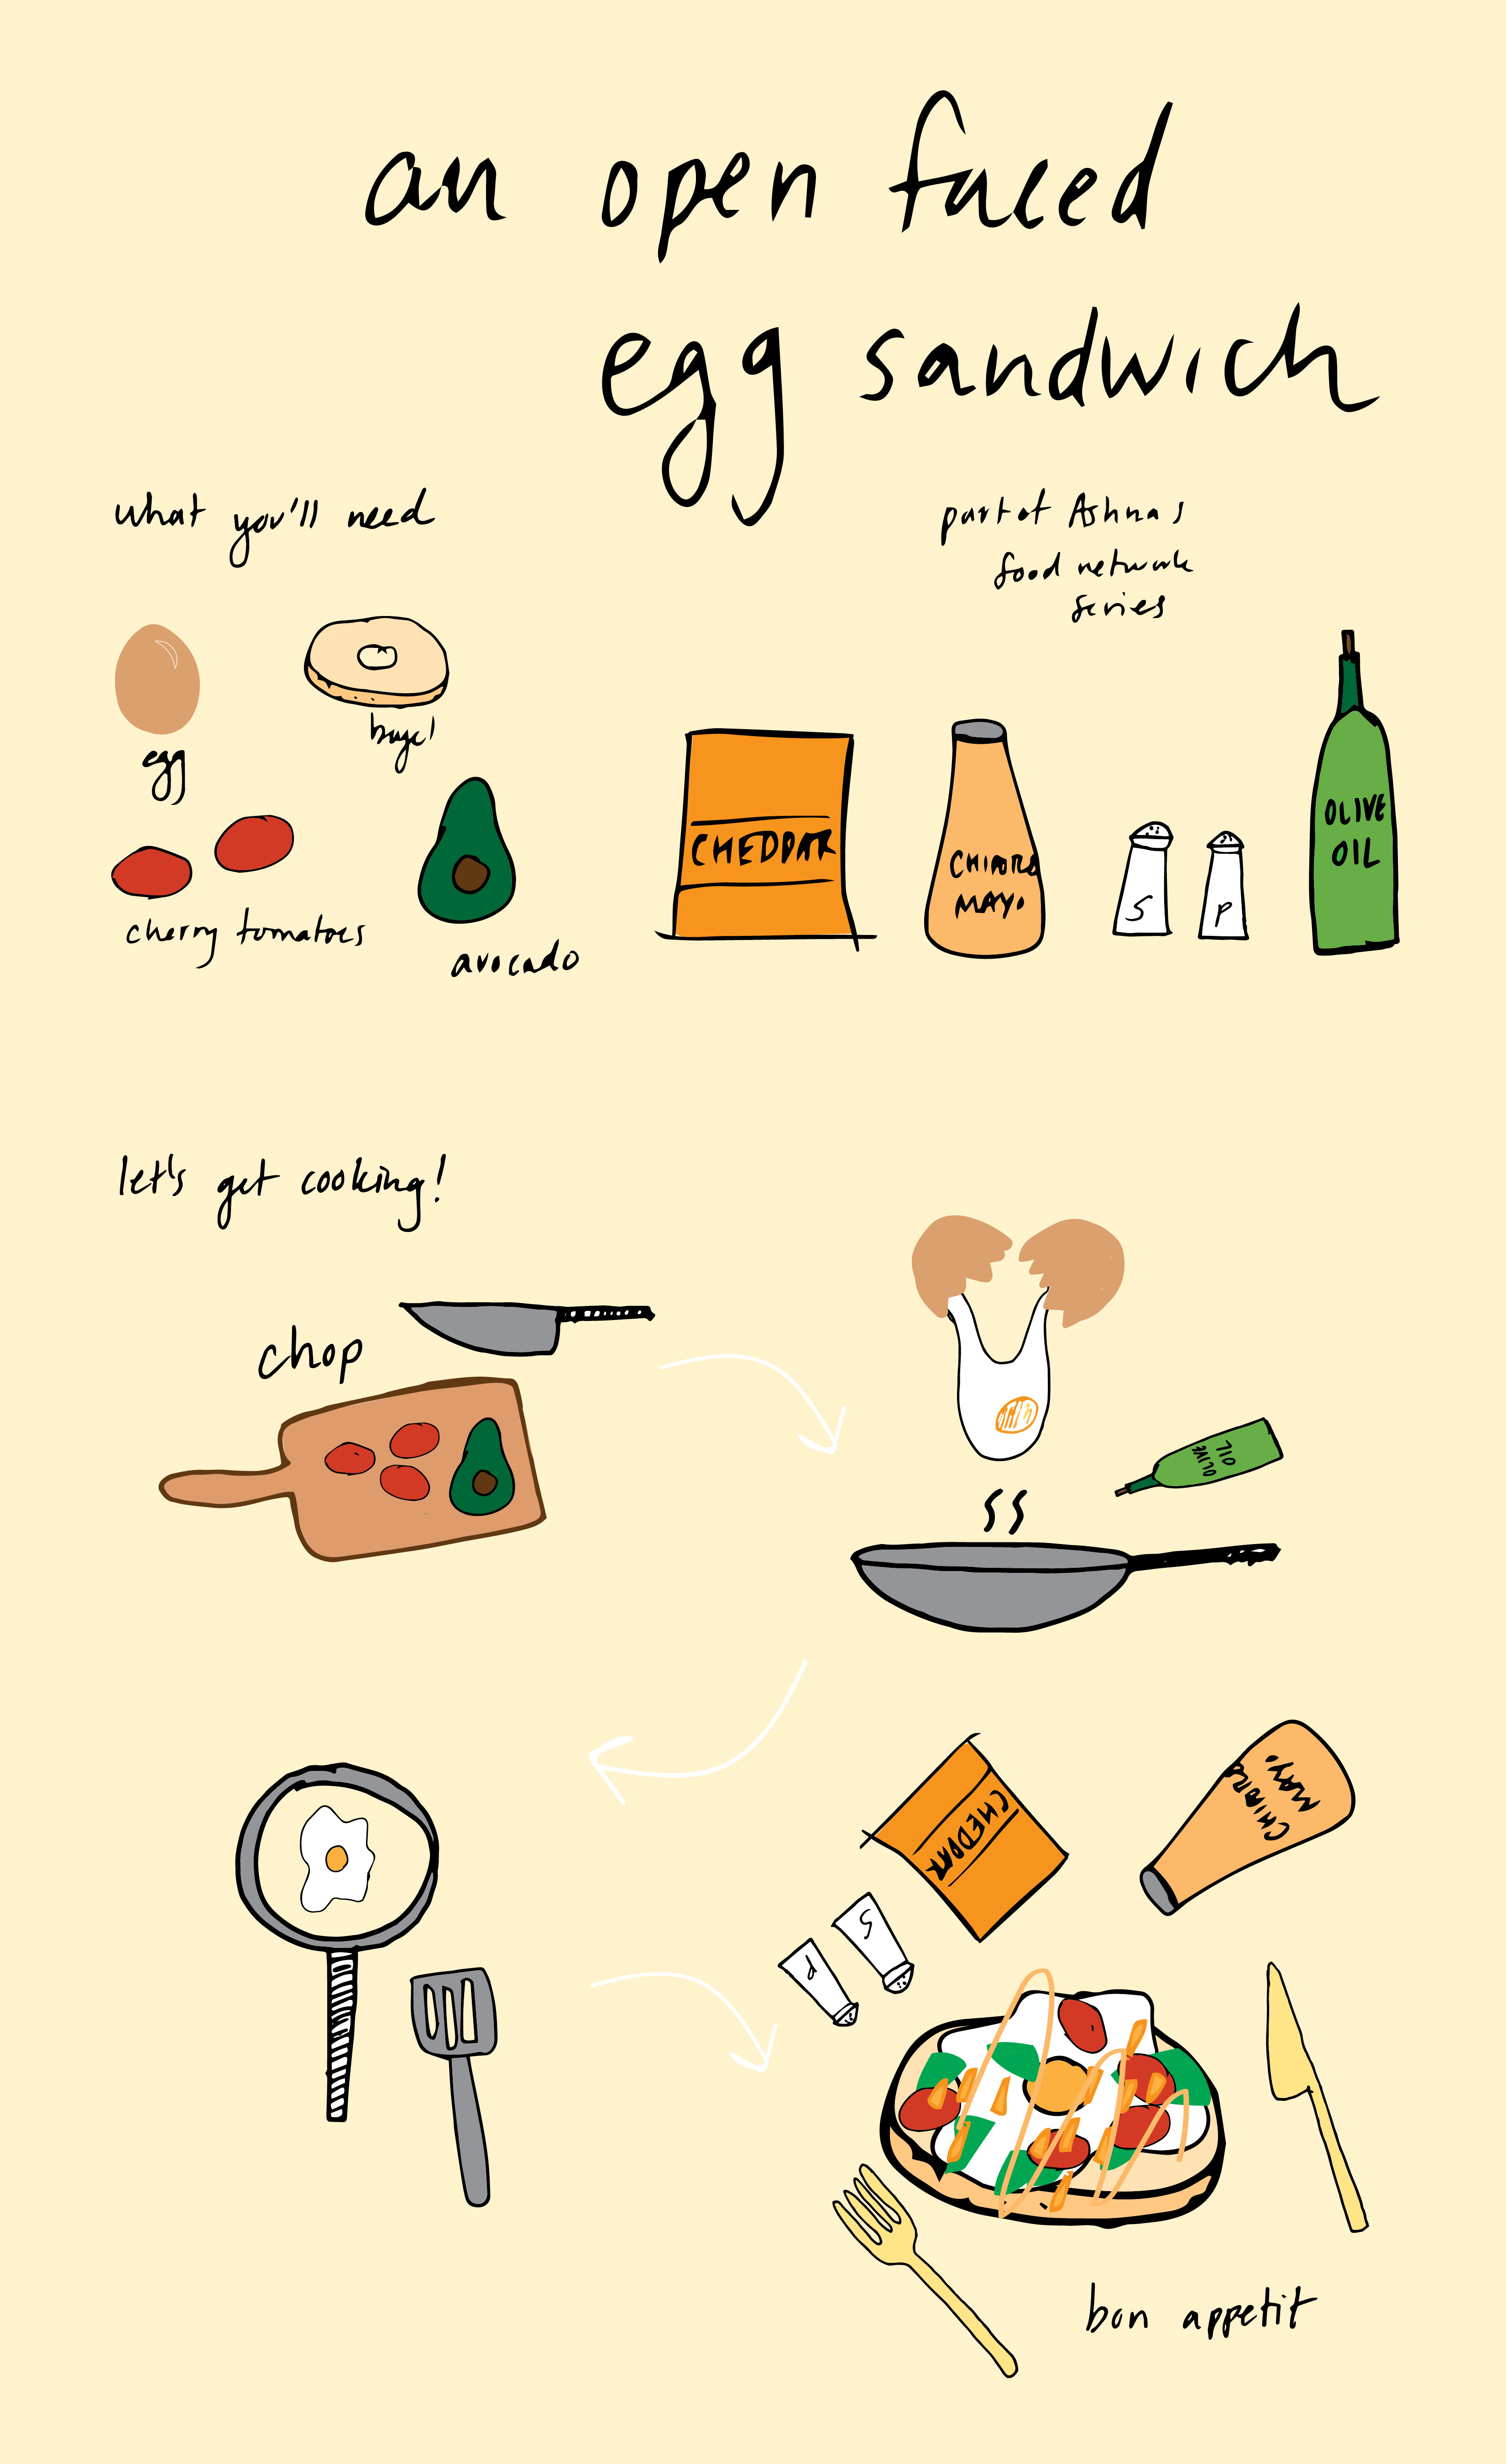 an open faced
egg sandwich
what you'll need
part of Ashna's
food network
series
egg
bagel
cherry tomatoes
avocado
CHEDDAR
MAY.
S
P
OLIVE
OIL
let's get cooking!
chop
OLIVE
OIL
CHEDDAR
MAY.
S
P
bon appetit